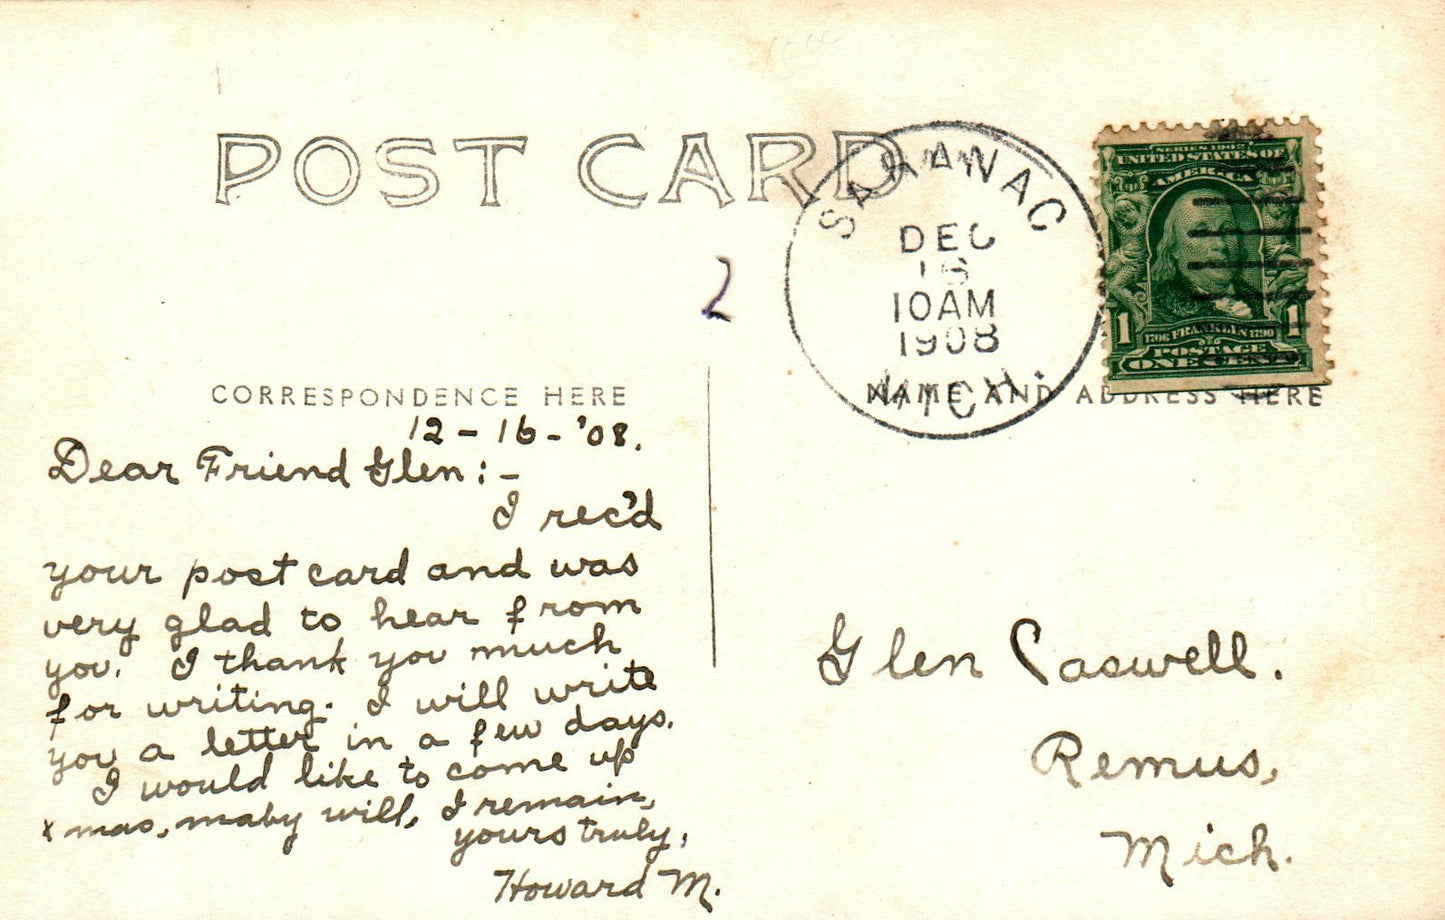 POST CARD
SARANAC
DEC
16
10AM
1908
MICH.
SERIES 1902
UNITED STATES OF
AMERICA
1 1
1706 FRANKLIN 1790
POSTAGE
ONE CENT
2
CORRESPONDENCE HERE
NAME AND ADDRESS HERE
12-16-'08.
Dear Friend Glen:-
I rec'd
your post card and was
very glad to hear from
you. I thank you much
for writing. I will write
you a letter in a few days.
I would like to come up
xmas, maby will, I remain,
yours truly,
Howard M.
Glen Caswell.
Remus,
Mich.